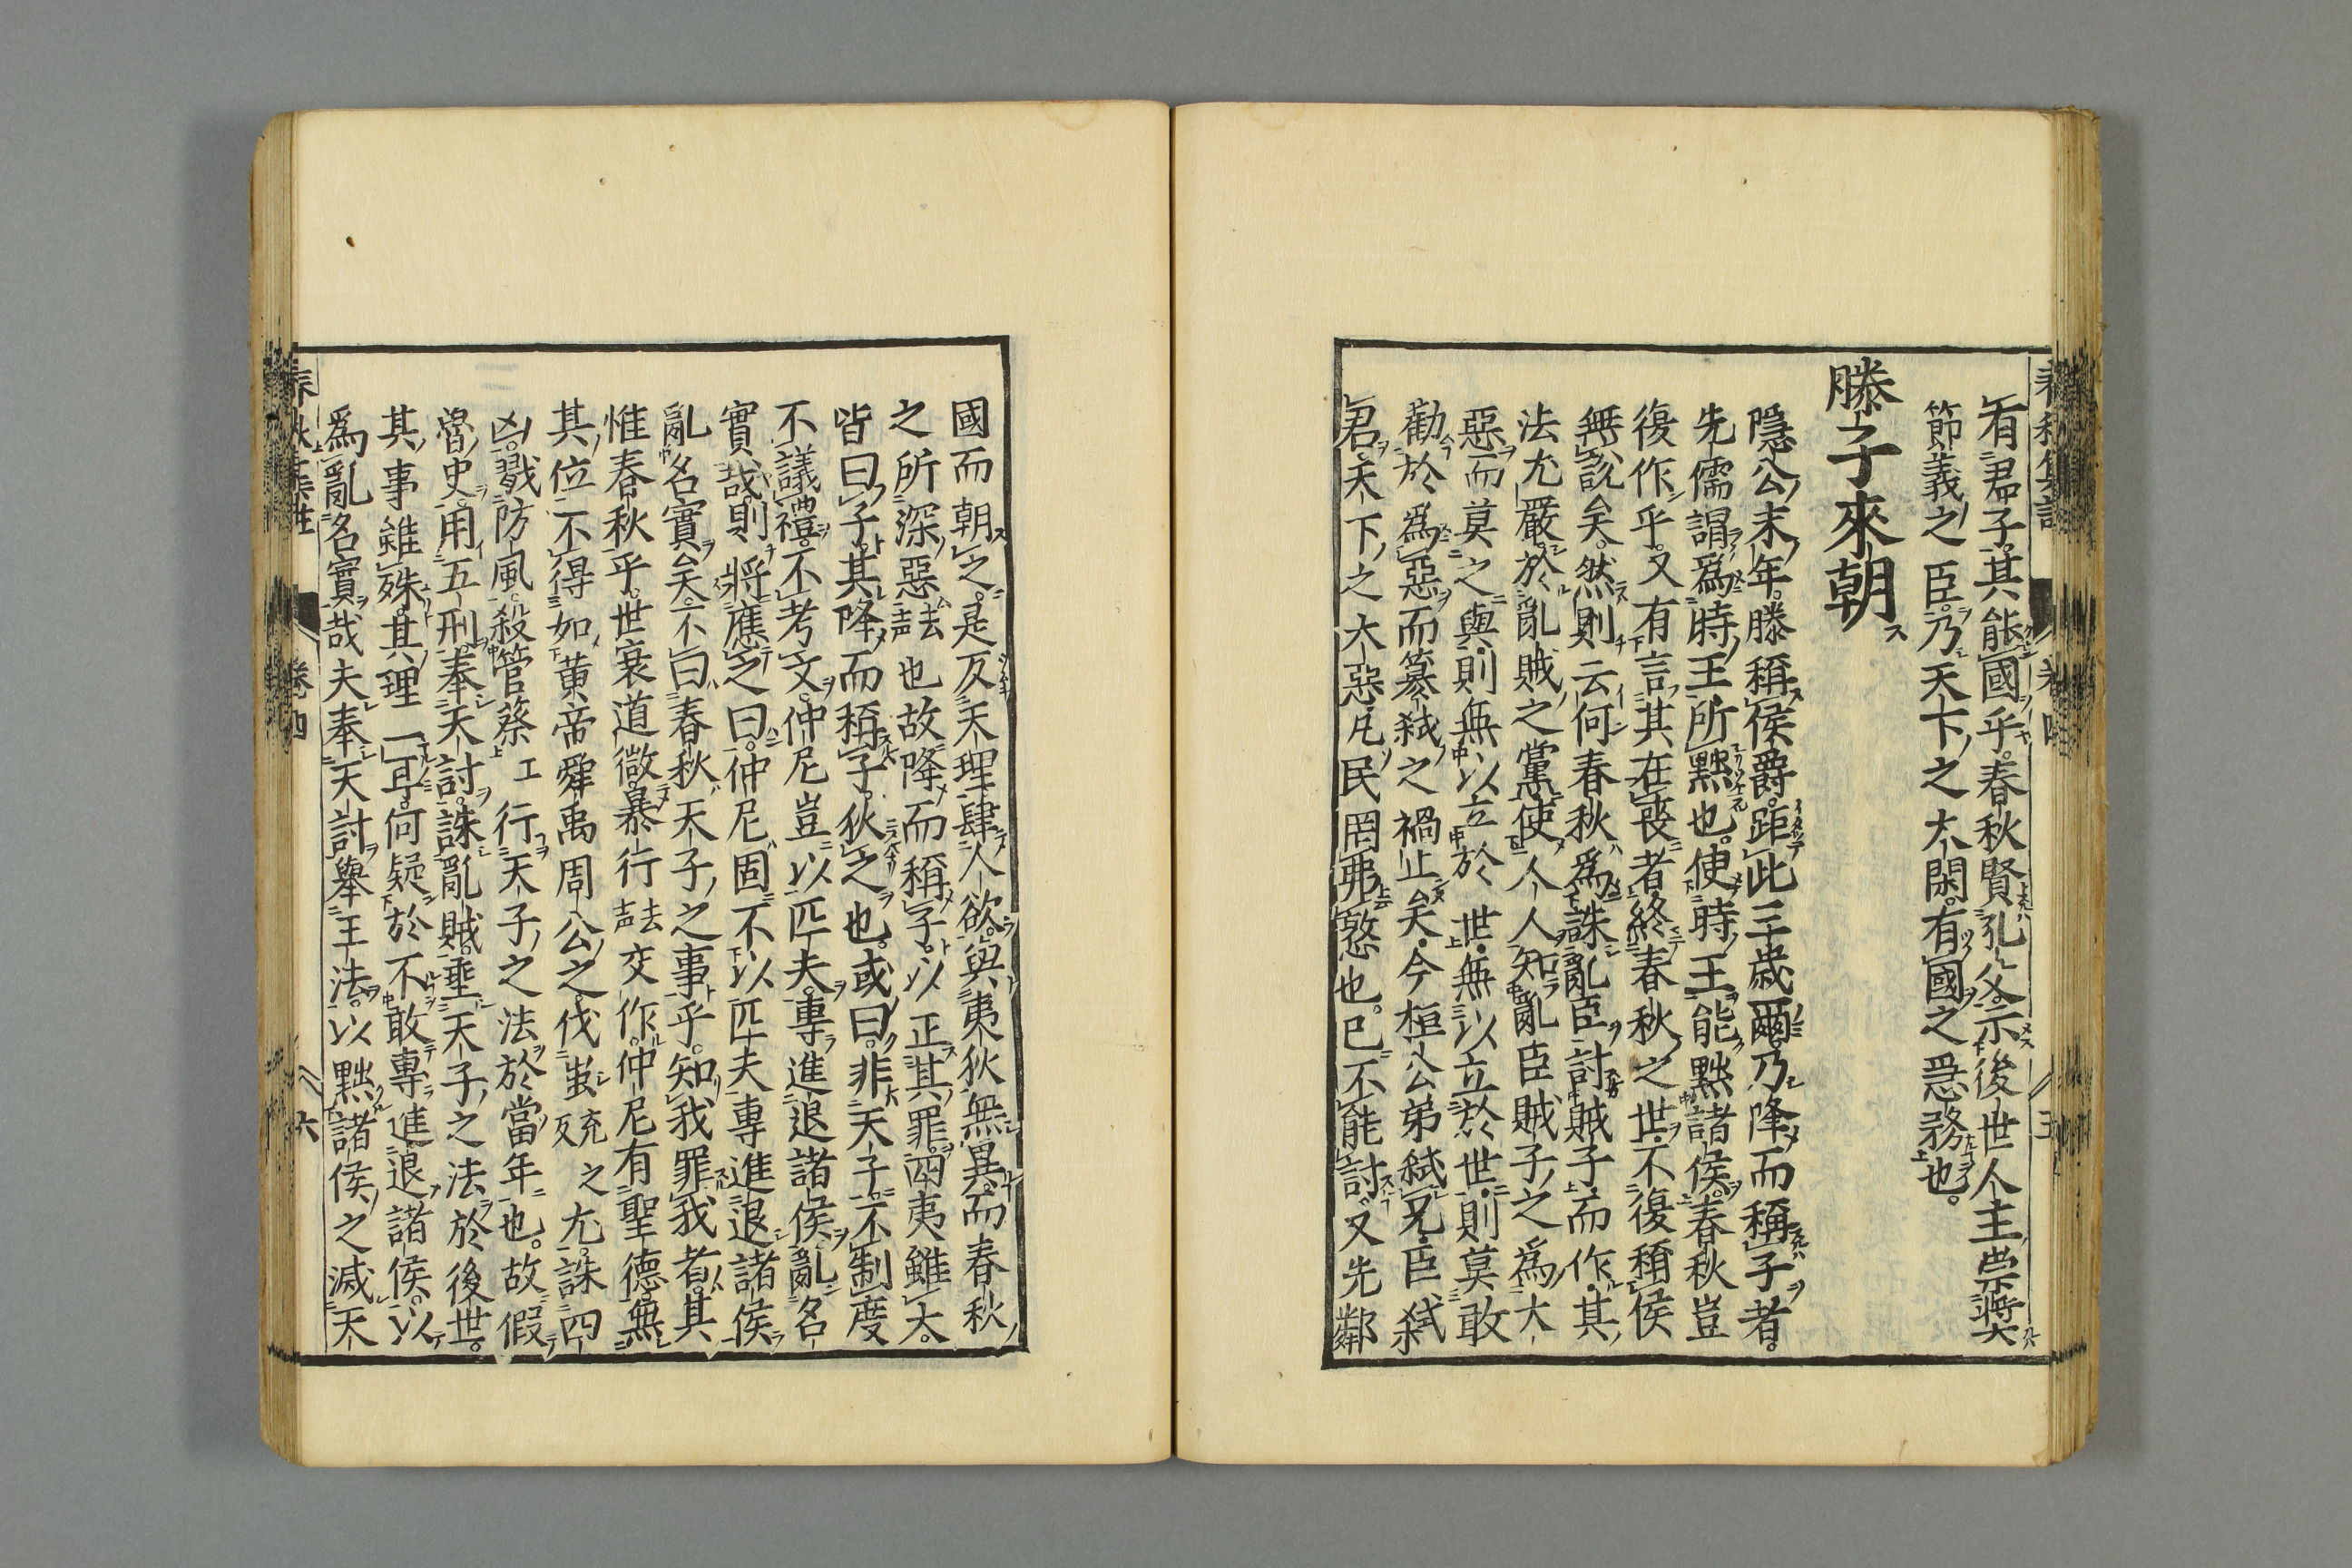 有君子其能國乎。春秋賢孔父示後世人主崇奬
節義之臣。乃天下之大閑。有國之急務也。
滕子來朝
隱公末年。滕稱侯爵。距此三歲爾。乃降而稱子者。
先儒謂爲時王所黜也。使時王能黜諸侯。春秋豈
復作乎。又有言其在喪者。終春秋之世。不復稱侯
無說矣。然則云何春秋爲誅亂臣討賊子而作。其
法尤嚴於亂賊之黨。使人人知亂臣賊子之爲大
惡而莫之與。則無以立於世。無以立於世。則莫敢
勸於爲惡而簒弑之禍止矣。今桓公弟弑兄。臣弑
君。天下之大惡。凡民罔弗憝也。已不能討。又先鄰
國而朝之。是反天理肆人欲。與夷狄無異。而春秋
之所深惡去声也故降而稱子。以正其罪。四夷雖大。
皆曰子。其降而稱子。狄之也。或曰。非天子。不制度
不議禮。不考文。仲尼豈以匹夫。專進退諸侯。亂名
實哉。則將應之曰。仲尼固不以匹夫專進退諸侯
亂名實矣。不曰春秋天子之事乎。知我罪我者。其
惟春秋乎。世衰道微。暴行去声交作。仲尼有聖德。無
其位。不得如黄帝舜禹周公之伐蚩充反之尤。誅四
凶。戮防風。殺管蔡。行天子之法於當年也。故假
魯史。用五刑。奉天討。誅亂賊。垂天子之法於後世。
其事雖殊。其理一耳。何疑於不敢專進退諸侯。以
爲亂名實哉夫奉天討。舉王法。以黜諸侯之滅天
卷四
六